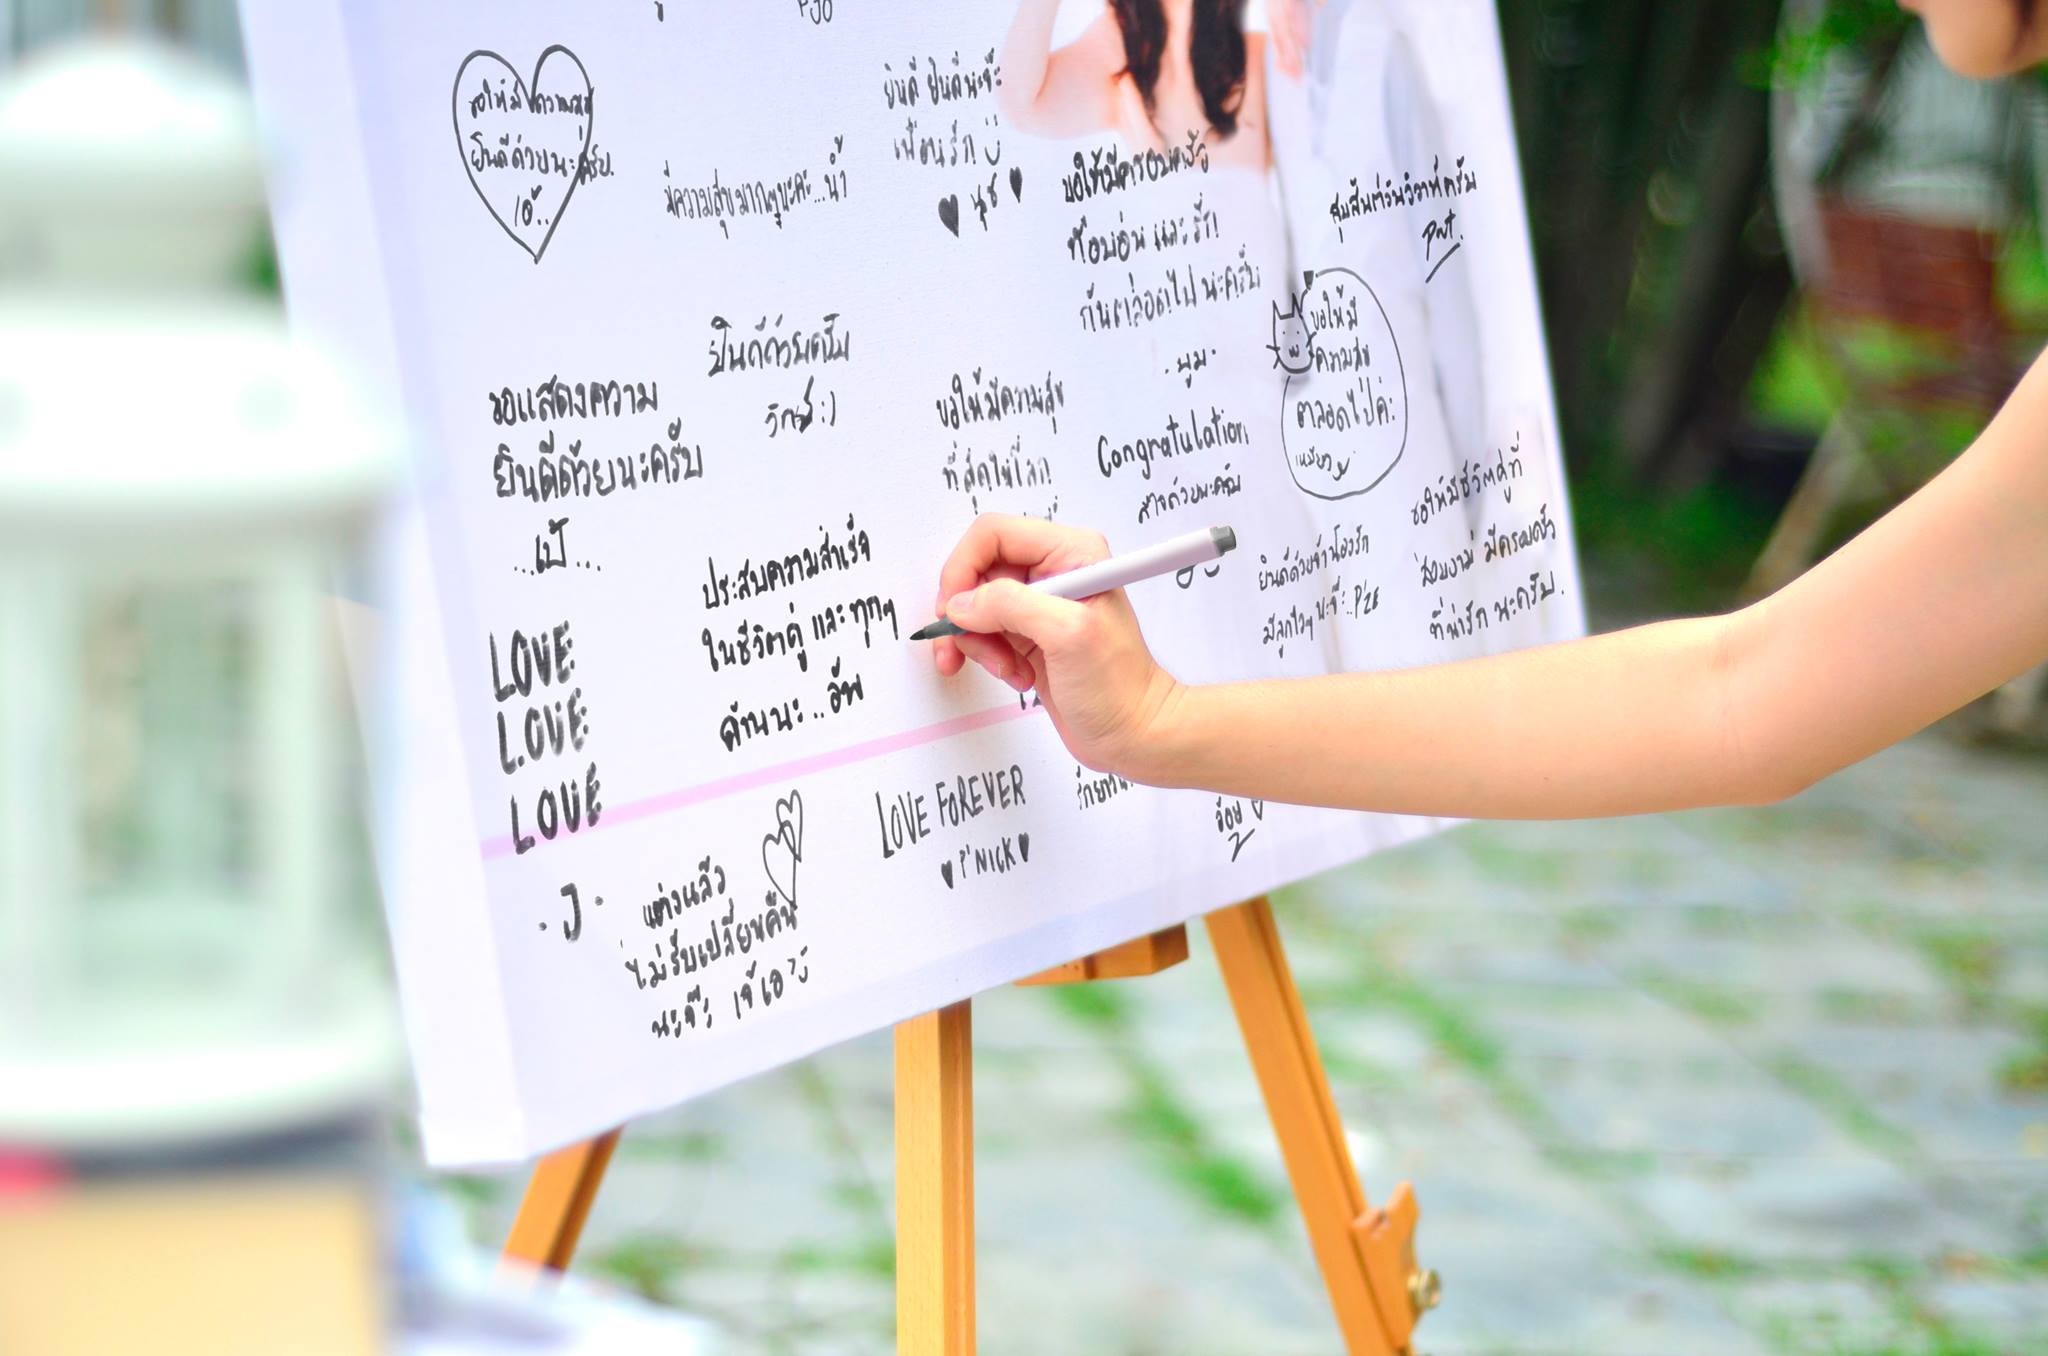 PJO
ขอให้มีความสุข
ยินดีด้วยนะครับ.
เอ้..
มีความสุขมากๆนะคะ...น้ำ
ยินดี ยินดีนะจ๊ะ
เพื่อนรัก
นุช
ขอให้มีครอบครัว
ที่อบอุ่น และรัก
กันตลอดไปนะครับ
.ภูม.
สุขสันต์วันวิวาห์ครับ
Pat.
ขอให้มี
ความสุข
ตลอดไปค่ะ
เหมียว
ยินดีด้วยครับ
:)
ขอแสดงความ
ยินดีด้วยนะครับ
...เป้...
ขอให้มีความสุข
ที่สุดในโลก
Congratulation
ด้วยนะครับ
ยินดีด้วยจ้าน้องรัก
มีลูกไวๆ นะจ๊ะ..P'
ขอให้มีชีวิตคู่ที่
สวยงาม มีครอบครัว
ที่น่ารัก นะครับ.
ประสบความสำเร็จ
ในชีวิตคู่ และทุกๆ
ด้านนะ..อัพ
LOVE
LOVE
LOVE
.J.
แต่งแล้ว
ไม่รับเปลี่ยนคืน
นะจ๊ะ เจ๊เอ
LOVE FOREVER
P'NICK